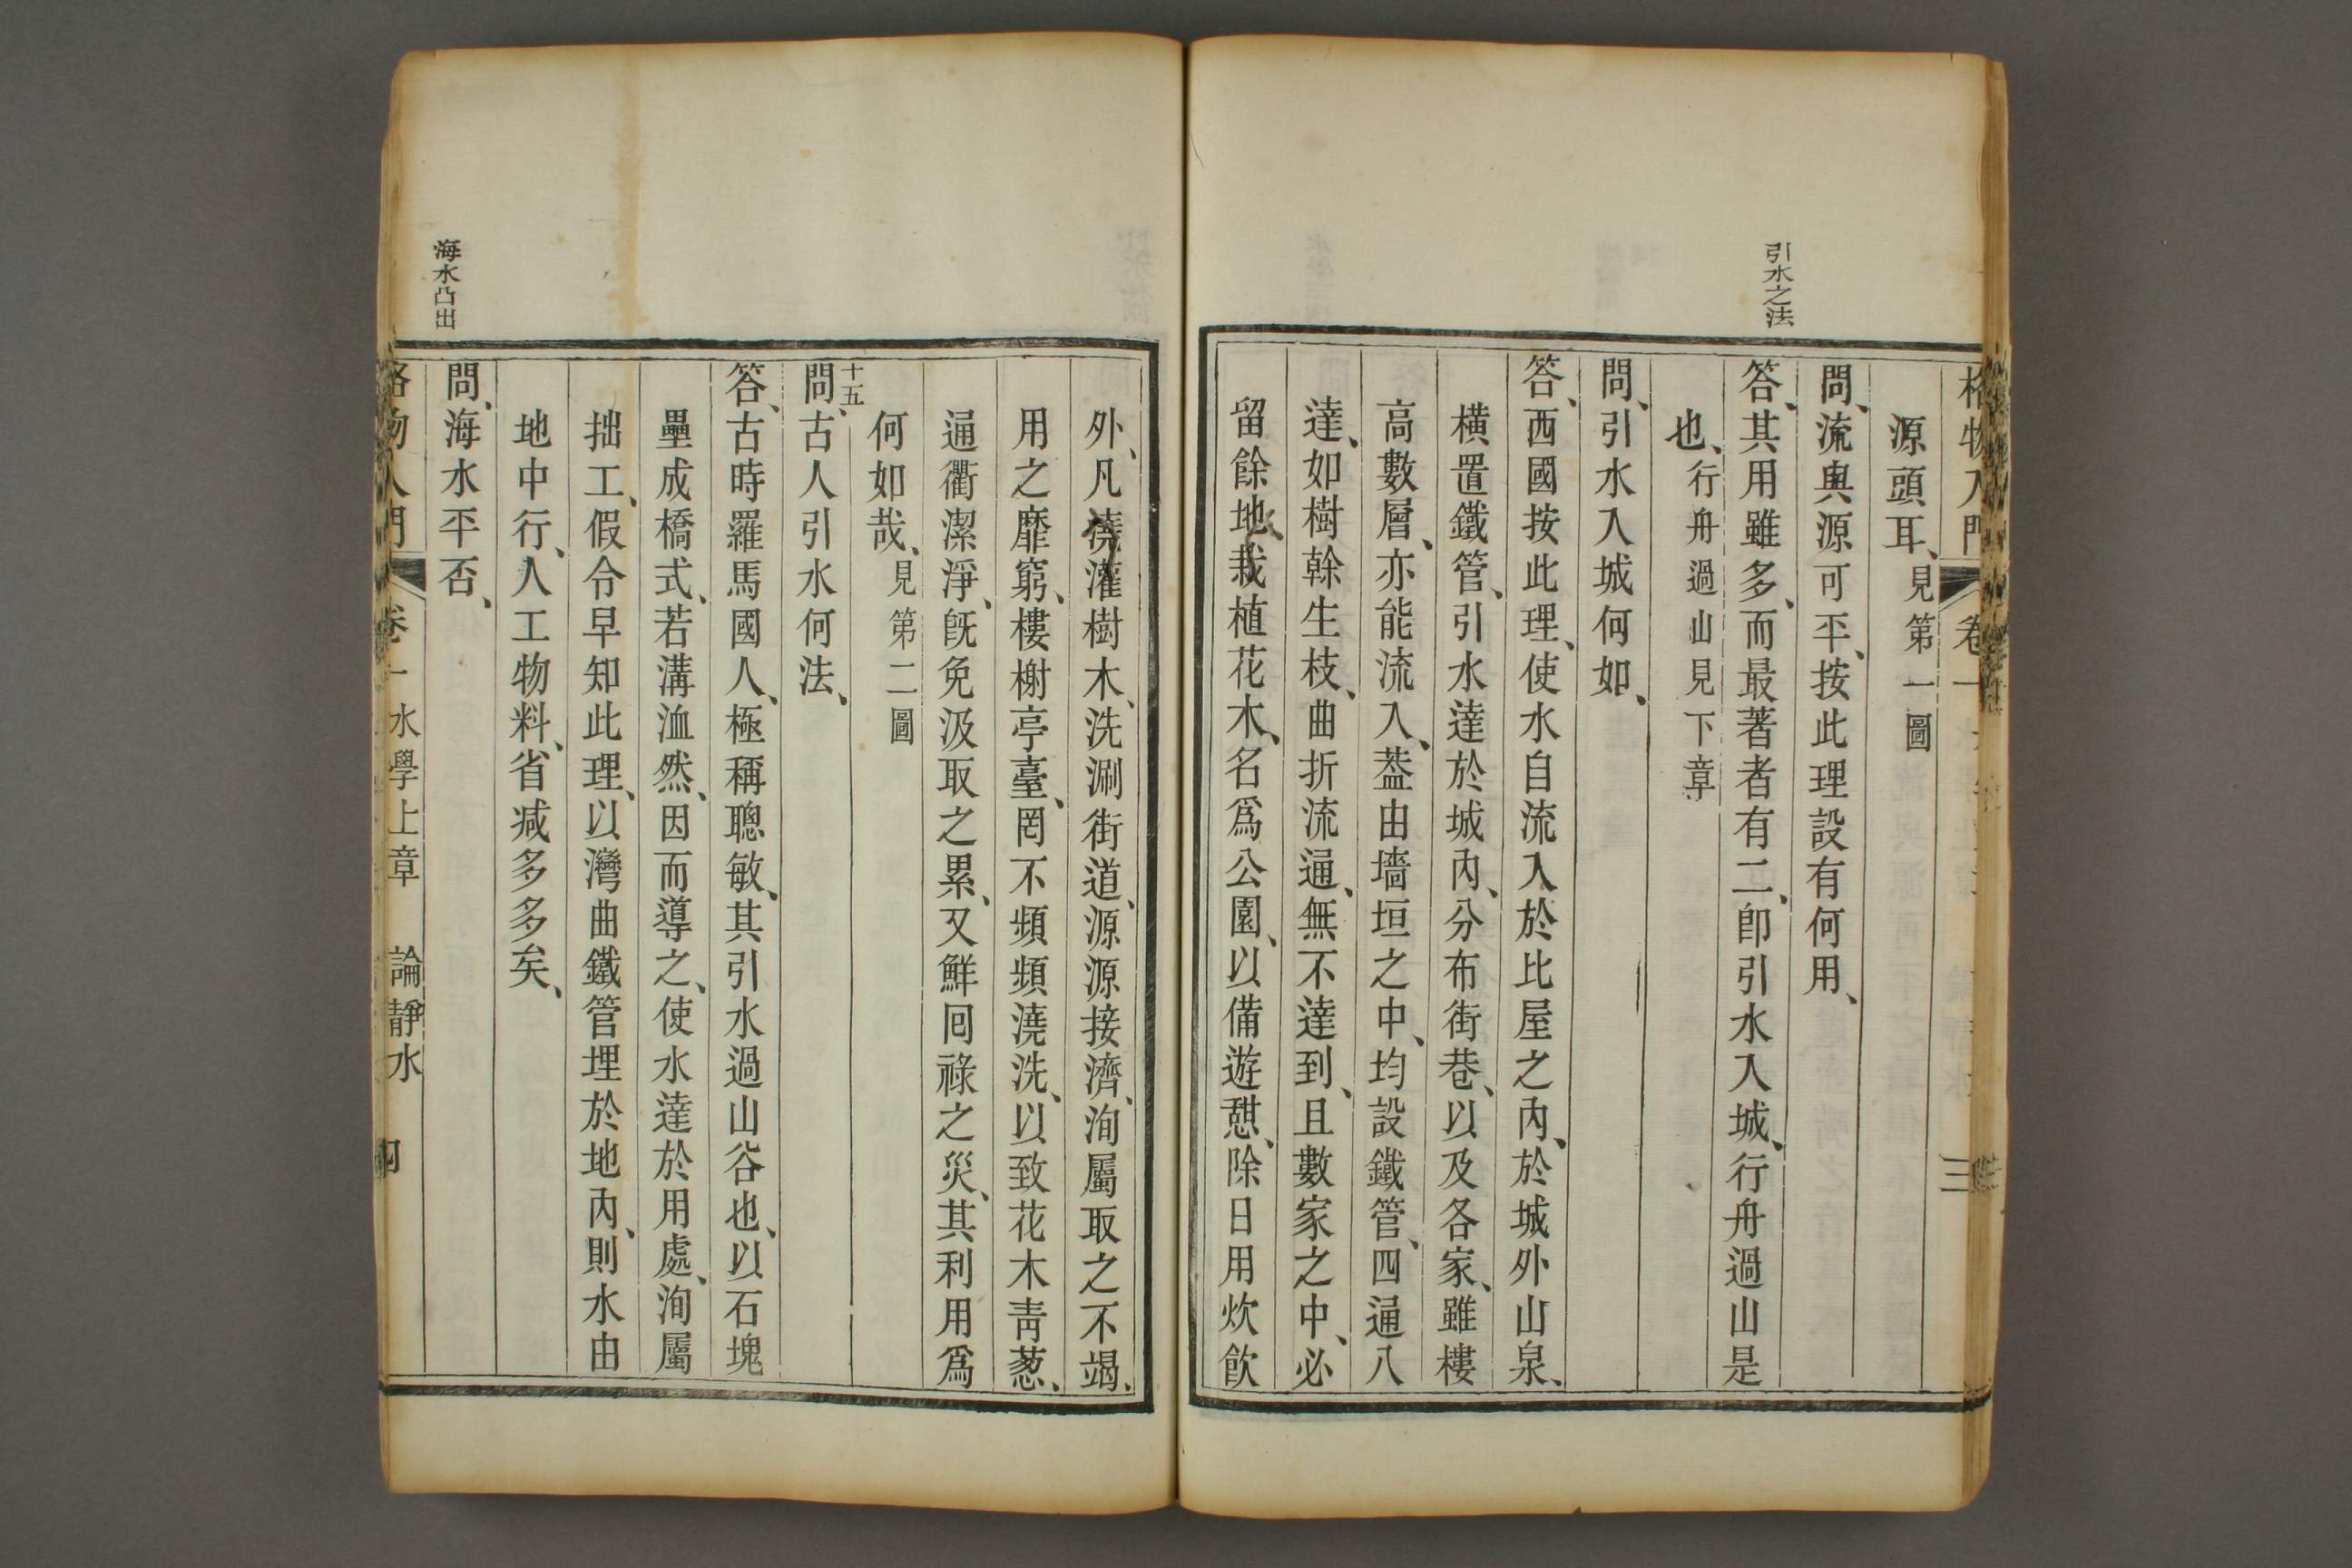 引水之法
格物入門 卷一 三
源頭耳、見第一圖
問、流與源可平、按此理設有何用、
答、其用雖多、而最著者有二、卽引水入城、行舟過山是
也、行舟過山見下章
問、引水入城何如、
答、西國按此理、使水自流入於比屋之內、於城外山泉、
橫置鐵管、引水達於城內、分布街巷、以及各家、雖樓
高數層、亦能流入、葢由墻垣之中、均設鐵管、四通八
達、如樹榦生枝、曲折流通、無不達到、且數家之中、必
留餘地、栽植花木、名爲公園、以備遊憇、除日用炊飮
外、凡澆灌樹木、洗涮街道、源源接濟、洵屬取之不竭、
用之靡窮、樓榭亭臺、罔不頻頻澆洗、以致花木靑葱、
通衢潔淨、旣免汲取之累、又鮮囘祿之災、其利用爲
何如哉、見第二圖
十五
問、古人引水何法、
答、古時羅馬國人、極稱聰敏、其引水過山谷也、以石塊
壘成橋式、若溝洫然、因而導之、使水達於用處、洵屬
拙工、假令早知此理、以灣曲鐵管埋於地內、則水由
地中行、人工物料、省减多多矣、
海水凸出
問、海水平否、
格物入門 卷一 水學上章 論靜水 四